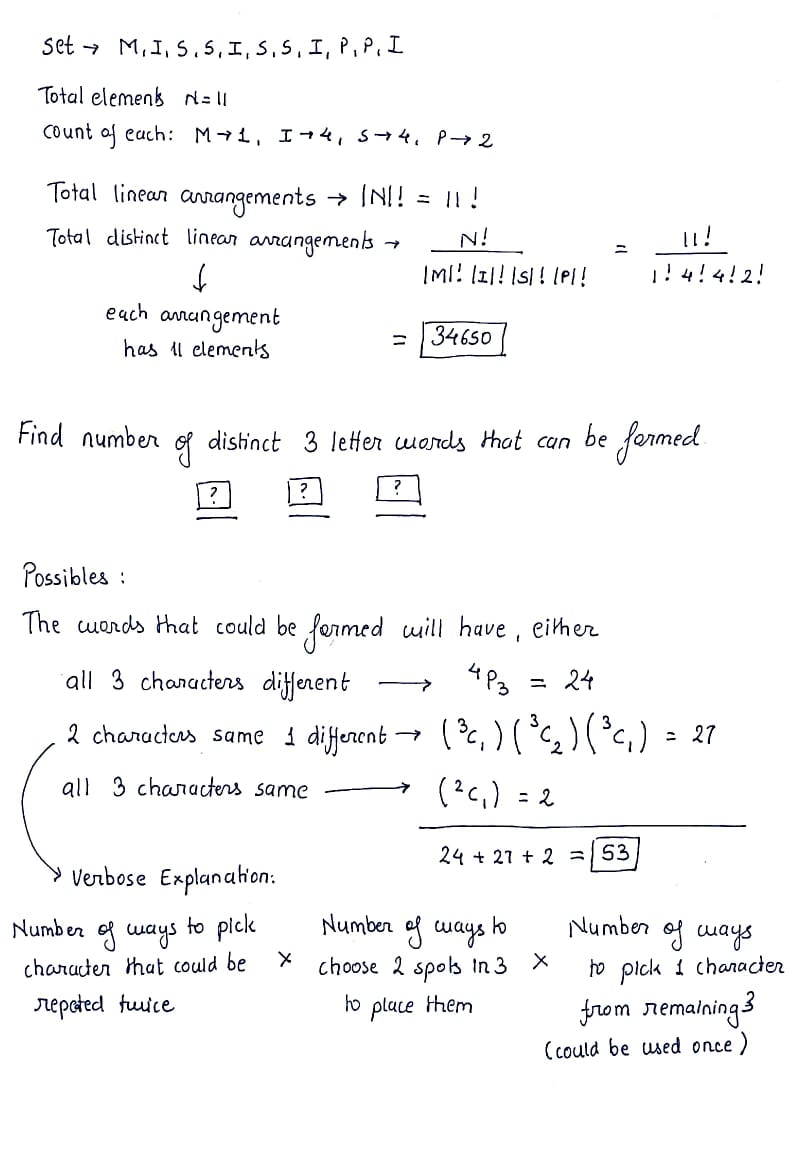 set → M, I, S, S, I, S, S, I, P, P, I
Total elements N = 11
count of each: M → 1, I → 4, S → 4, P → 2
Total linear arrangements → |N|! = 11!
Total distinct linear arrangements → N! / |M|! |I|! |S|! |P|! = 11! / 1! 4! 4! 2!
↓
each arrangement
has 11 elements
= 34650
Find number of distinct 3 letter words that can be formed.
? ? ?
Possibles :
The words that could be formed will have, either
all 3 characters different → ⁴P₃ = 24
2 characters same 1 different → (³C₁) (³C₂) (³C₁) = 27
all 3 characters same → (²C₁) = 2
24 + 27 + 2 = 53
Verbose Explanation:
Number of ways to pick × Number of ways to × Number of ways
character that could be choose 2 spots in 3 to pick 1 character
repeted twice to place them from remaining 3
(could be used once)